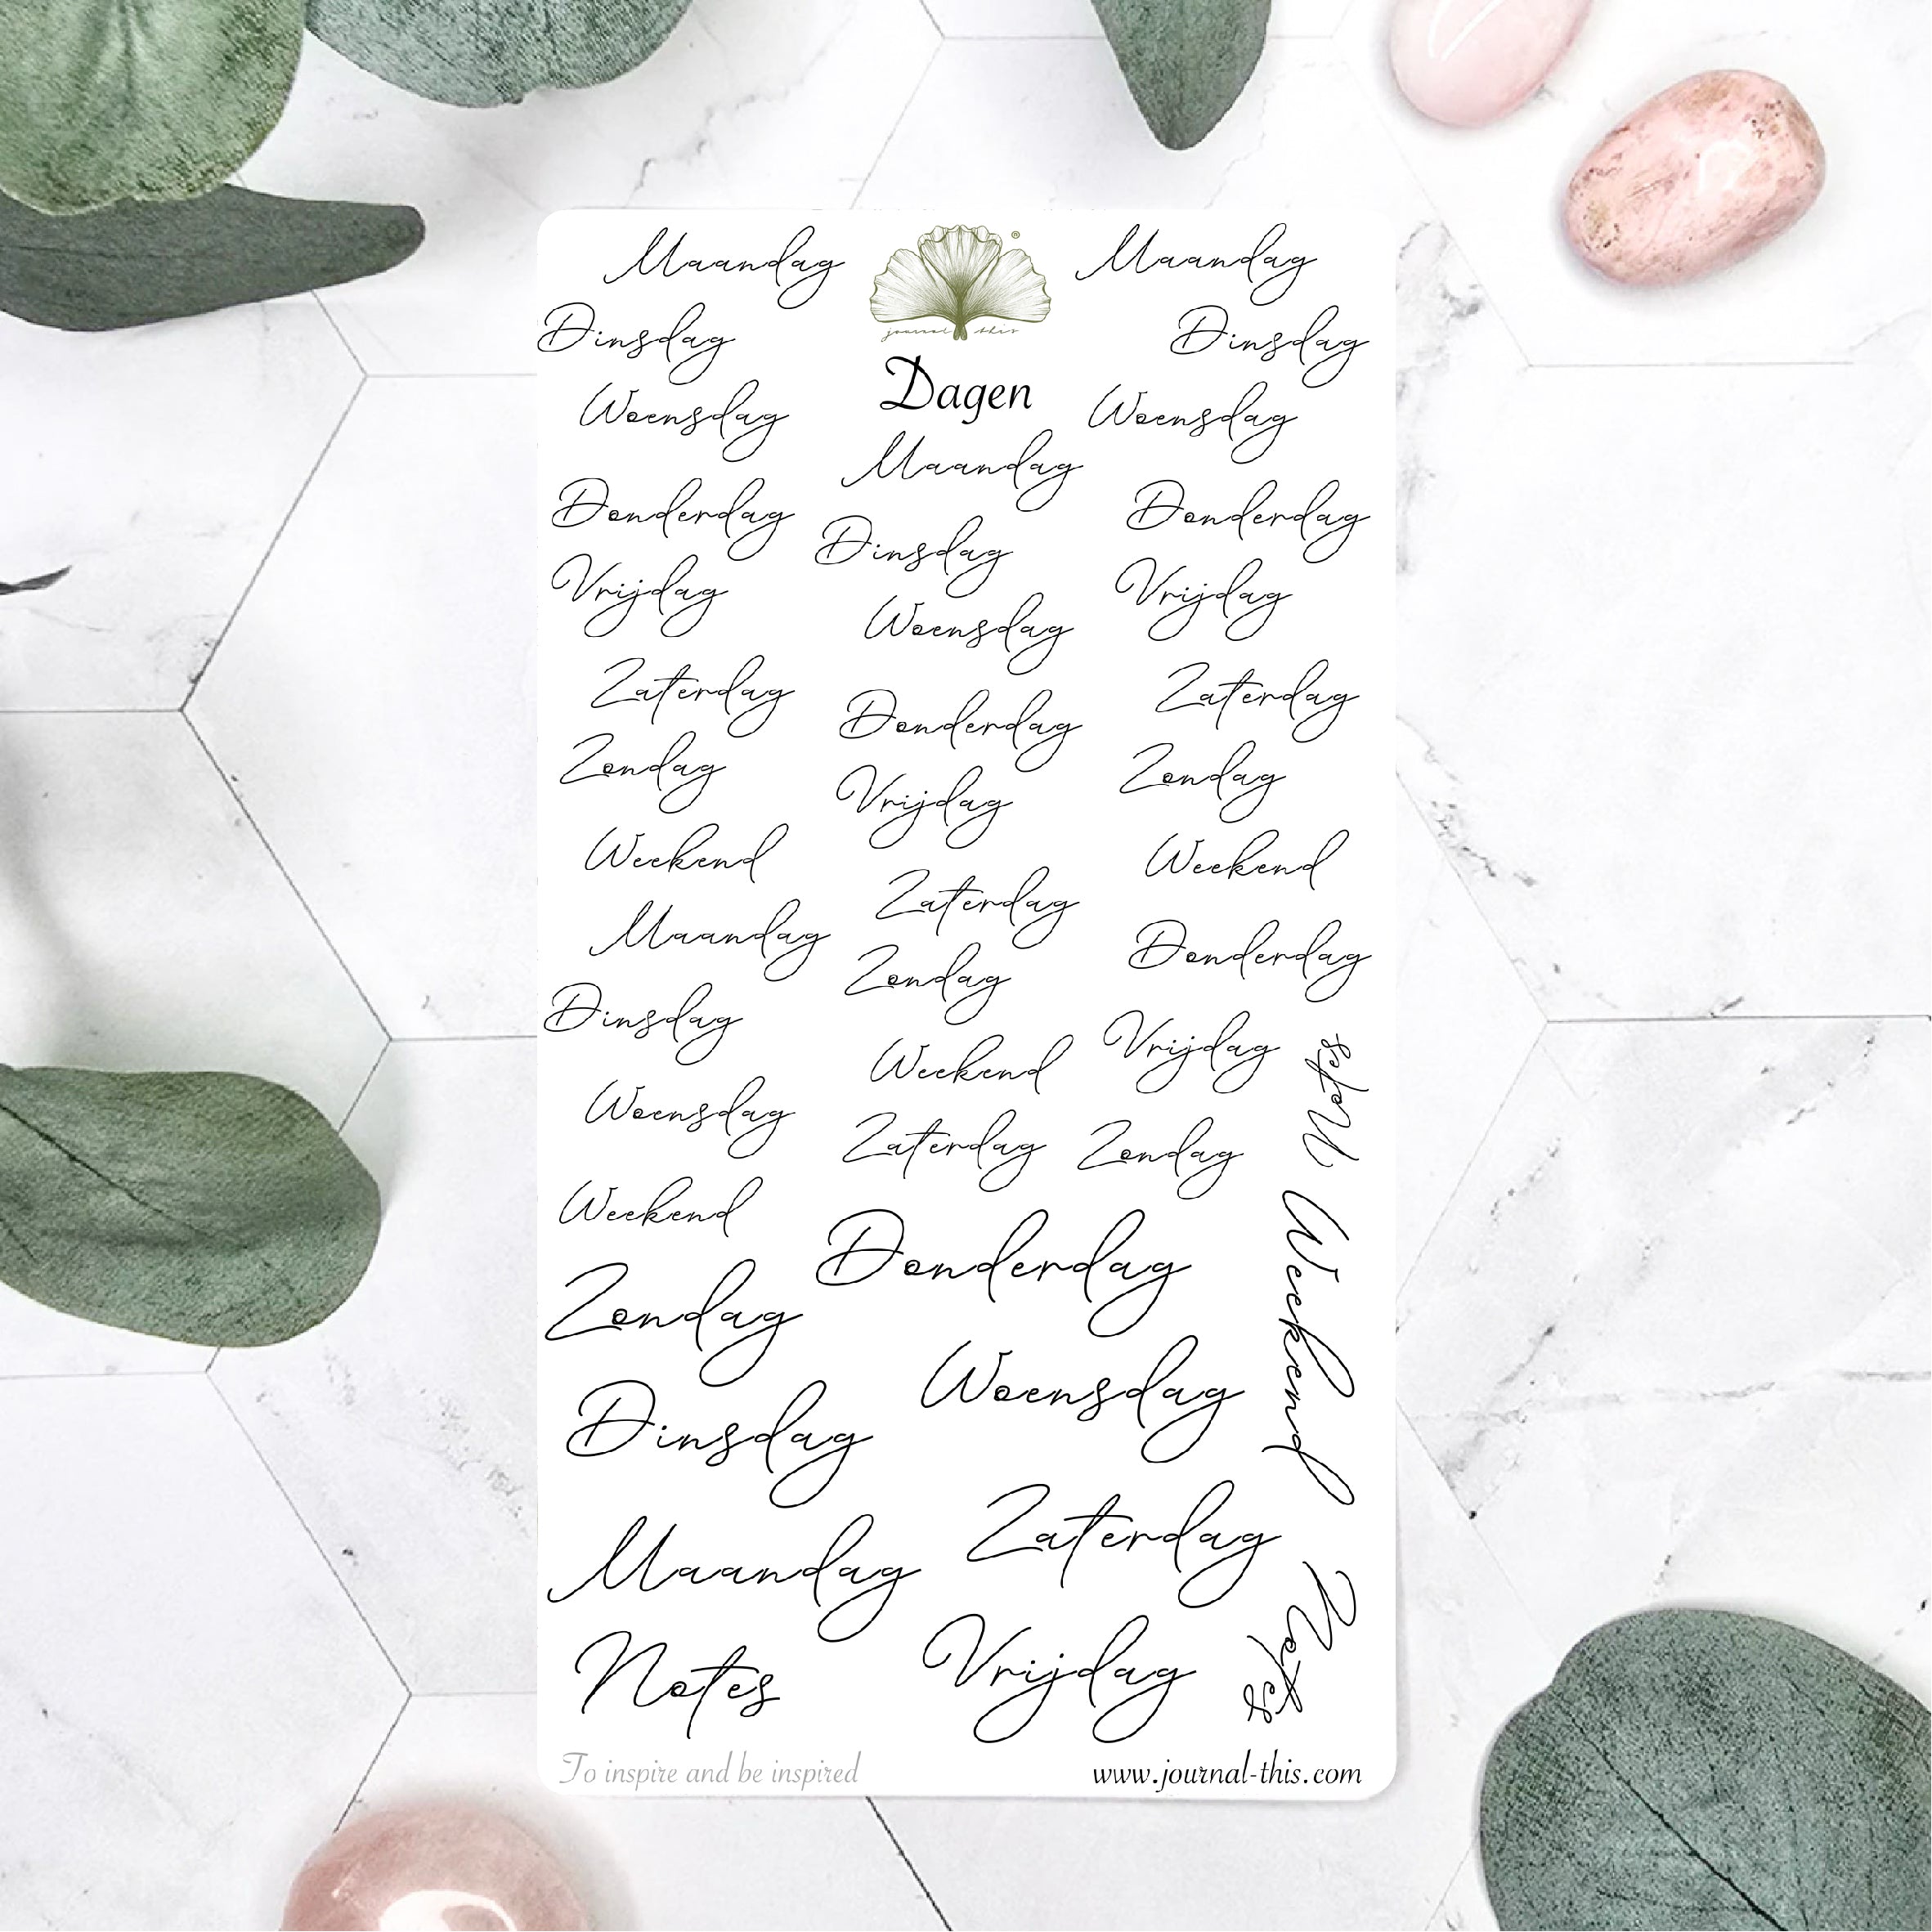 Maandag
Maandag
journal this
®
Dinsdag
Dinsdag
Dagen
Woensdag
Woensdag
Maandag
Donderdag
Donderdag
Dinsdag
Vrijdag
Vrijdag
Woensdag
Zaterdag
Zaterdag
Donderdag
Zondag
Zondag
Vrijdag
Weekend
Weekend
Zaterdag
Maandag
Donderdag
Zondag
Dinsdag
Vrijdag
Notes
Weekend
Woensdag
Zaterdag
Zondag
Weekend
Donderdag
Weekend
Zondag
Woensdag
Dinsdag
Zaterdag
Maandag
Notes
Vrijdag
Notes
To inspire and be inspired
www.journal-this.com